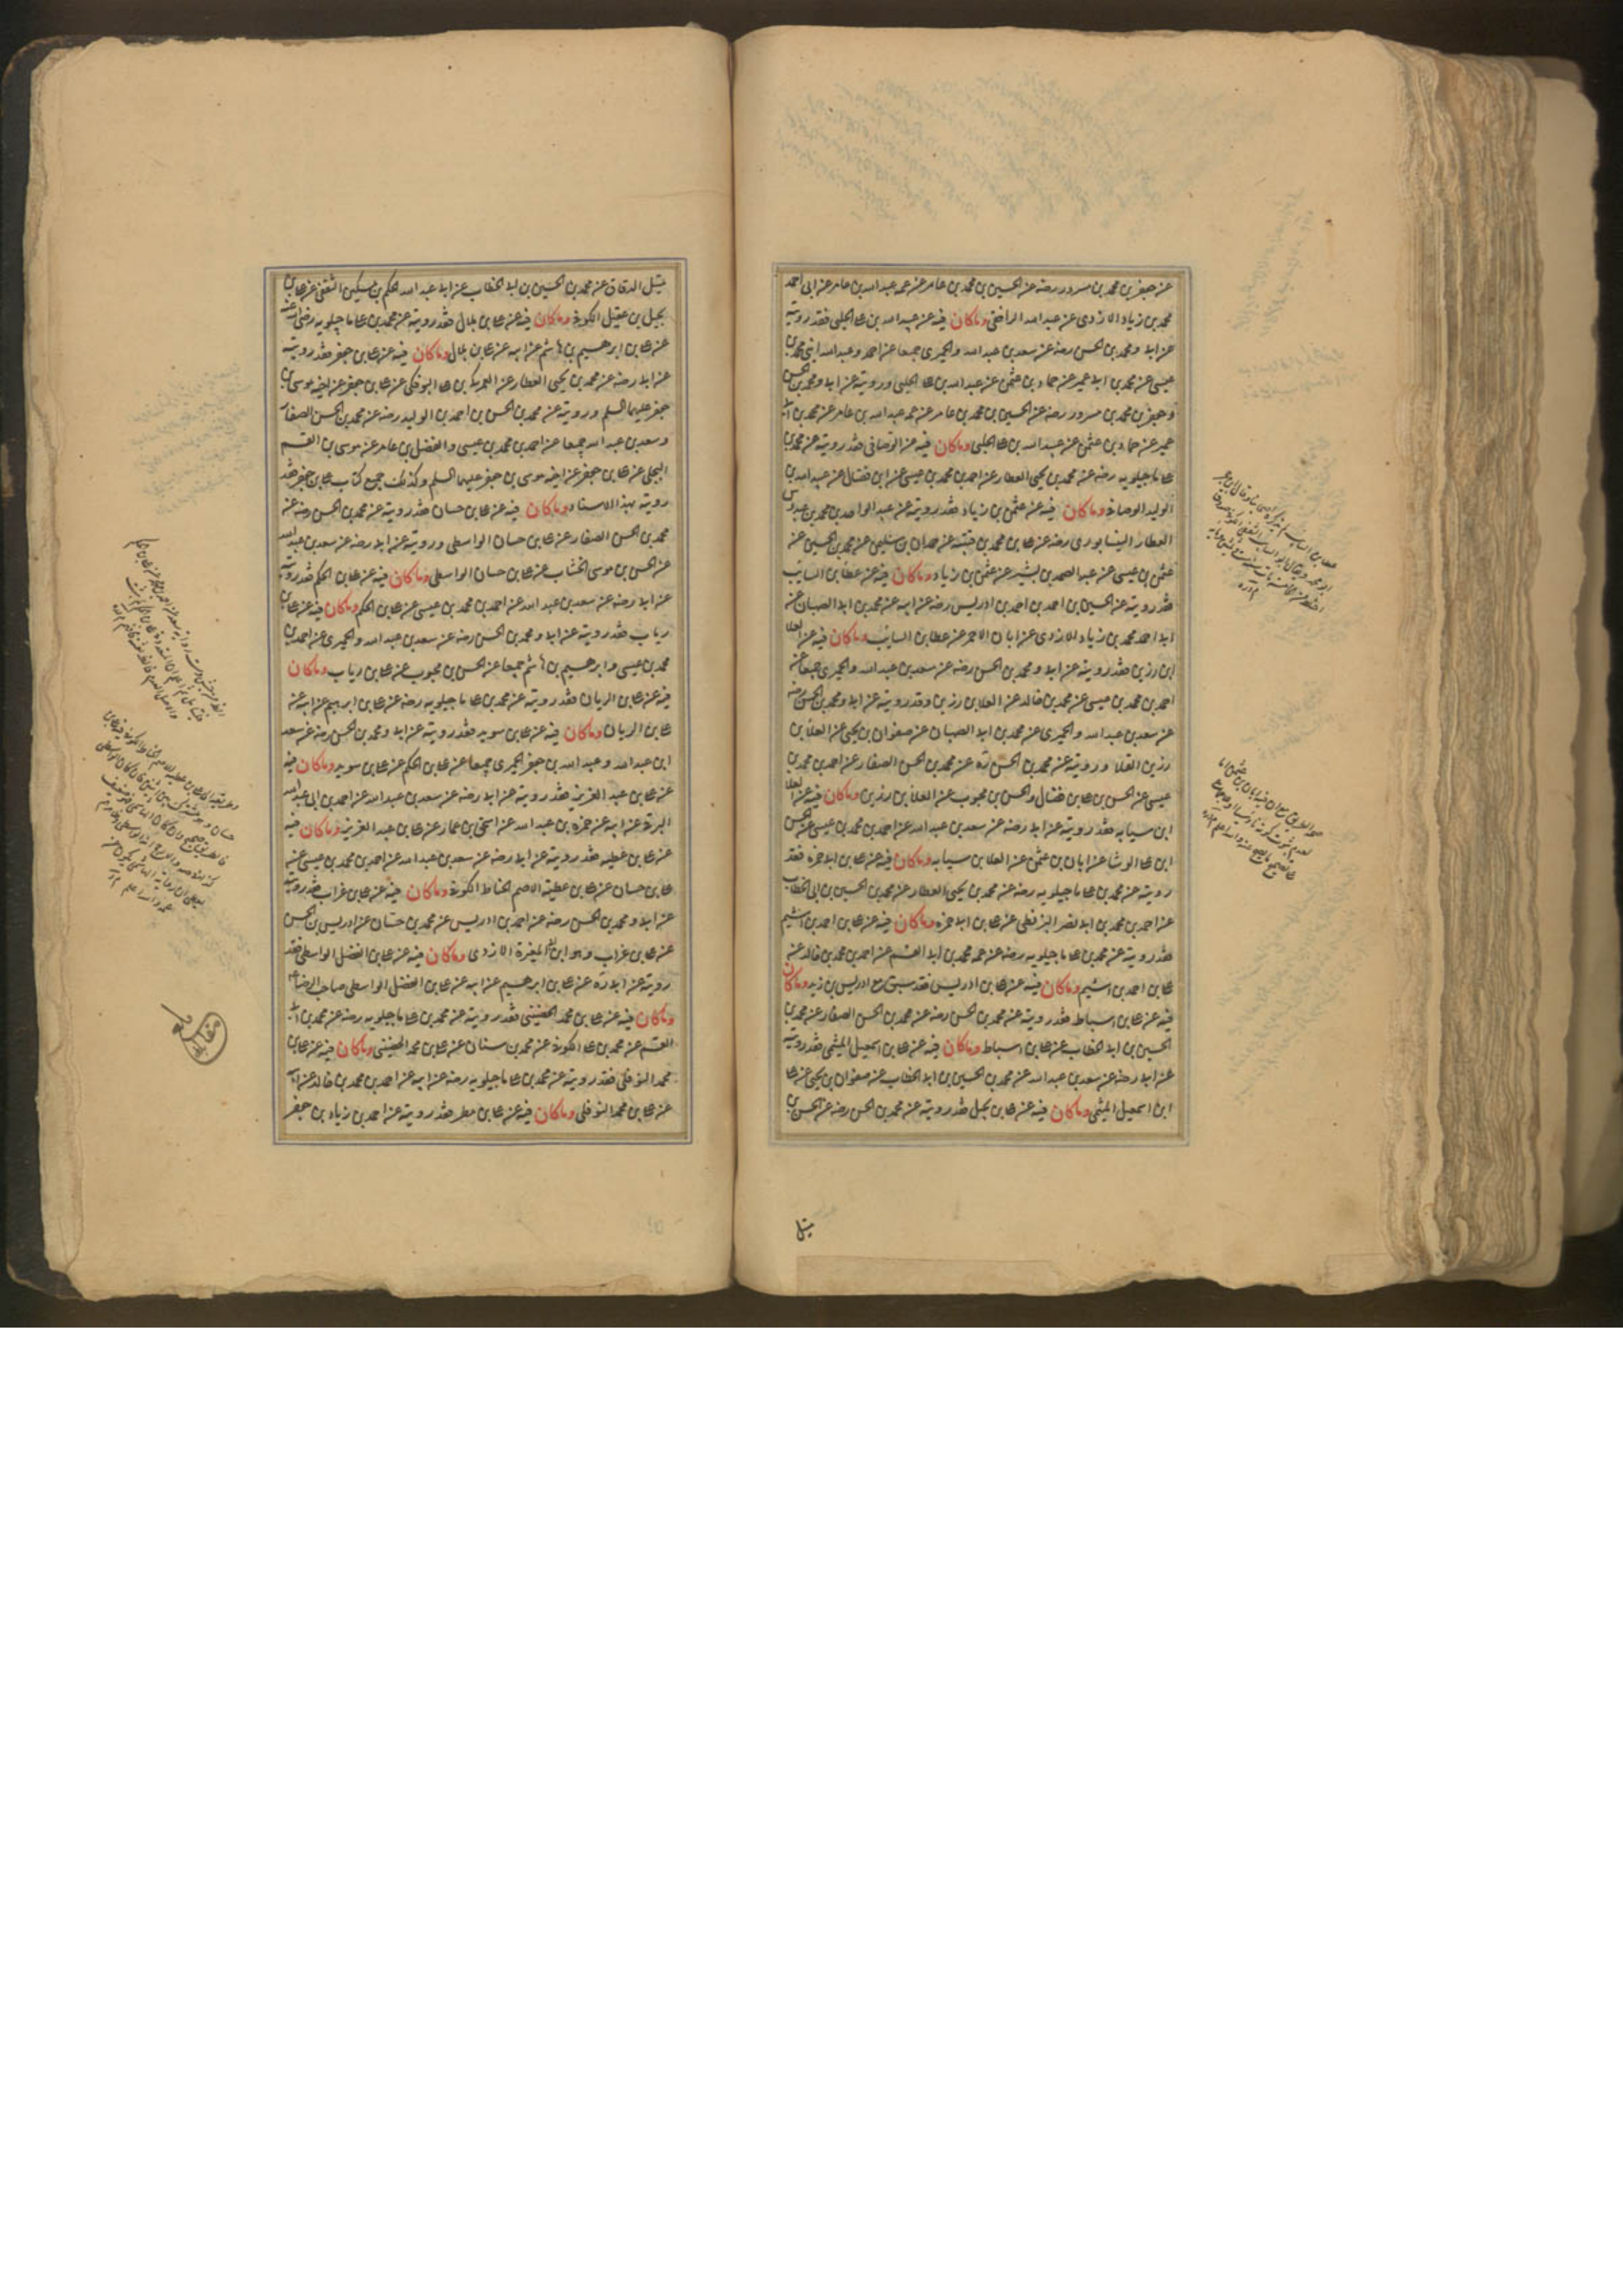 عن جعفر بن محمد بن مسرور رضه عن الحسين بن محمد بن عامر عن عمه عبد الله بن عامر عن ابى احمد
محمد بن زياد الازدى عن عبد الله المرافقى وما كان فيه عن عبيد الله بن على الحلبى فقد رويته
عن ابى و محمد بن الحسن رضه عن سعد بن عبد الله والحميرى جميعا عن احمد وعبد الله ابنى محمد بن
عيسى عن محمد بن ابى عمير عن حماد بن عثمن عن عبيد الله بن على الحلبى ورويته عن ابى و محمد بن الحسن
وجعفر بن محمد بن مسرور رضه عن الحسين بن محمد بن عامر عن عمه عبد الله بن عامر عن محمد بن ابى
عمير عن حماد بن عثمن عن عبيد الله بن على الحلبى وما كان فيه عن الوصافى فقد رويته عن محمد بن
على ماجيلويه رضه عن محمد بن يحيى العطار عن احمد بن محمد بن عيسى عن ابن فضال عن عبيد الله بن
الوليد الوصافى وما كان فيه عن عثمن بن زياد فقد رويته عن عبد الواحد بن محمد بن عبدوس
العطار النيسابورى رضه عن على بن محمد بن قتيبه عن حمدان بن سليمن عن محمد بن الحسين عن
عثمن بن عيسى عن عبد الصمد بن بشير عن عثمن بن زياد وما كان فيه عن عطا بن السايب
فقد رويته عن الحسين بن احمد بن ادريس رضه عن ابيه عن محمد بن ابى الصهبان عن
ابى احمد محمد بن زياد الازدى عن ابان الاحمر عن عطا بن السايب وما كان فيه عن العلا
ابن رزين فقد رويته عن ابى و محمد بن الحسن رضه عن سعد بن عبد الله والحميرى جميعا عن
احمد بن محمد بن عيسى عن محمد بن خالد عن العلا بن رزين وقد رويته عن ابى و محمد بن الحسن رضه
عن سعد بن عبد الله والحميرى عن محمد بن ابى الصهبان عن صفوان بن يحيى عن العلا بن
رزين القلا ورويته عن محمد بن الحسن ره عن محمد بن الحسن الصفار عن احمد بن محمد بن
عيسى عن الحسن بن على بن فضال والحسن بن محبوب عن العلا بن رزين وما كان فيه عن العلا
ابن سيابه فقد رويته عن ابى رضه عن سعد بن عبد الله عن احمد بن محمد بن عيسى عن الحسن
ابن على الوشا عن ابان بن عثمن عن العلا بن سيابه وما كان فيه عن على بن ابى حمزه فقد
رويته عن محمد بن على ماجيلويه رضه عن محمد بن يحيى العطار عن محمد بن الحسين بن ابى الخطاب
عن احمد بن محمد بن ابى نصر البزنطى عن على بن ابى حمزه وما كان فيه عن على بن احمد بن اشيم
فقد رويته عن محمد بن على ماجيلويه رضه عن عمه محمد بن ابى القسم عن احمد بن محمد بن خالد عن
على بن احمد بن اشيم وما كان فيه عن على بن ادريس فقد سبق مع ادريس بن زيد وما كان
فيه عن على بن اسباط فقد رويته عن محمد بن الحسن رضه عن محمد بن الحسن الصفار عن محمد بن
الحسين بن ابى الخطاب عن على بن اسباط وما كان فيه عن على بن اسمعيل الميثمى فقد رويته
عن ابى رضه عن سعد بن عبد الله عن محمد بن الحسين بن ابى الخطاب عن صفوان بن يحيى عن على
ابن اسمعيل الميثمى وما كان فيه عن على بن بجيل فقد رويته عن محمد بن الحسن رضه عن الحسن بن
متيل
متيل الدقاق عن محمد بن الحسين بن ابى الخطاب عن ابى عبد الله الحكم بن مسكين الثقفى عن على بن
بجيل بن عقيل الكوفى وما كان فيه عن على بن بلال فقد رويته عن محمد بن على ماجيلويه رضى الله عنه
عن على بن ابرهيم بن هاشم عن ابيه عن على بن بلال وما كان فيه عن على بن جعفر فقد رويته
عن ابى رضه عن محمد بن يحيى العطار عن العمركى بن على البوفكى عن على بن جعفر عن اخيه موسى بن
جعفر عليهما السلم ورويته عن محمد بن الحسن بن احمد بن الوليد رضه عن محمد بن الحسن الصفار
وسعد بن عبد الله جميعا عن احمد بن محمد بن عيسى والفضل بن عامر عن موسى بن القسم
البجلى عن على بن جعفر عن اخيه موسى بن جعفر عليهما السلم وكذلك جميع كتاب على بن جعفر فقد
رويته بهذا الاسناد وما كان فيه عن على بن حسان فقد رويته عن محمد بن الحسن رضه عن
محمد بن الحسن الصفار عن على بن حسان الواسطى ورويته عن ابى رضه عن سعد بن عبد الله
عن الحسن بن موسى الخشاب عن على بن حسان الواسطى وما كان فيه عن على بن الحكم فقد رويته
عن ابى رضه عن سعد بن عبد الله عن احمد بن محمد بن عيسى عن على بن الحكم وما كان فيه عن على بن
رياب فقد رويته عن ابى و محمد بن الحسن رضه عن سعد بن عبد الله والحميرى عن احمد بن
محمد بن عيسى وابرهيم بن هاشم جميعا عن الحسن بن محبوب عن على بن رياب وما كان
فيه عن على بن الريان فقد رويته عن محمد بن على ماجيلويه رضه عن على بن ابرهيم عن ابيه عن
على بن الريان وما كان فيه عن على بن سويد فقد رويته عن ابى و محمد بن الحسن رضه عن سعد
ابن عبد الله وعبد الله بن جعفر الحميرى جميعا عن على بن الحكم عن على بن سويد وما كان فيه
عن على بن عبد العزيز فقد رويته عن ابى رضه عن سعد بن عبد الله عن احمد بن ابى عبد الله
البرقى عن ابيه عن حمزه بن عبد الله عن اسحق بن عمار عن على بن عبد العزيز وما كان فيه
عن على بن عطيه فقد رويته عن ابى رضه عن سعد بن عبد الله عن احمد بن محمد بن عيسى عن
على بن حسان عن على بن عطيه الاصم الحناط الكوفى وما كان فيه عن على بن غراب فقد رويته
عن ابى و محمد بن الحسن رضه عن احمد بن ادريس عن محمد بن حسان عن ادريس بن الحسن
عن على بن غراب وهو ابن ابى المغيرة الازدى وما كان فيه عن على بن الفضل الواسطى فقد
رويته عن ابى ره عن على بن ابرهيم عن ابيه عن على بن الفضل الواسطى صاحب الرضا ع
وما كان فيه عن على بن محمد الحضينى فقد رويته عن محمد بن على ماجيلويه رضه عن محمد بن ابى
القسم عن محمد بن على الكوفى عن محمد بن سنان عن على بن محمد الحضينى وما كان فيه عن على بن
محمد النوفلى فقد رويته عن محمد بن على ماجيلويه رضه عن ابيه عن احمد بن محمد بن خالد عن ابيه
عن على بن محمد النوفلى وما كان فيه عن على بن مطر فقد رويته عن احمد بن زياد بن جعفر